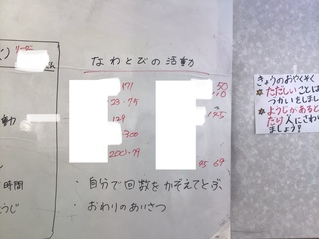 なわとびの活動
171
23-75
129
300
200-99
50
10
125
95 69
・自分で回数をかぞえてとぶ
・おわりのあいさつ
動
時間
きょうのおやくそく
ただしいことば
づかいをしまし
ようじがあると
たり人にさわ
ましょう!